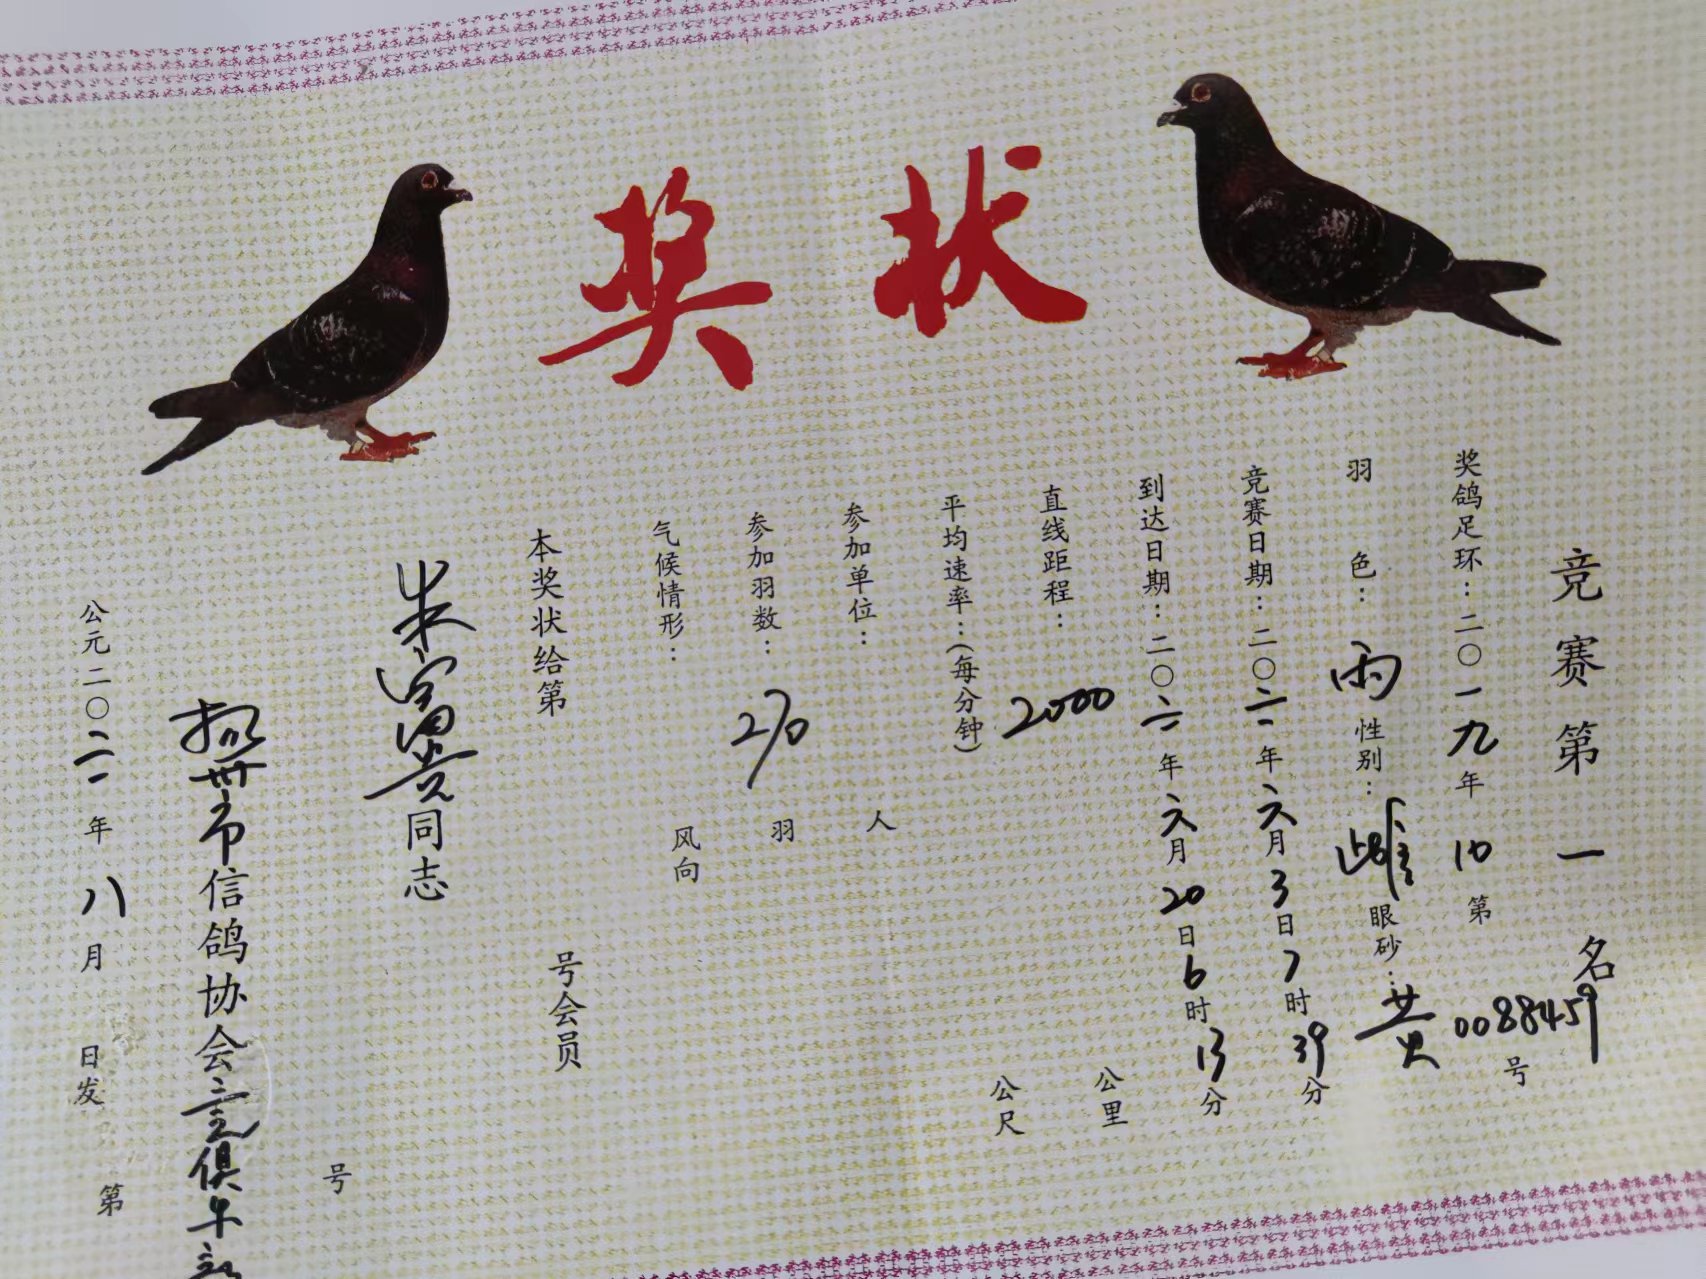 奖状
竞赛第一名
奖鸽足环：二〇一九年10第0088459号
羽色：雨 性别：雌 眼砂：黄
竞赛日期：二〇二一年六月3日7时39分
到达日期：二〇二一年六月20日6时13分
直线距程：2000公里
平均速率：（每分钟）公尺
参加单位：人
参加羽数：270羽
气候情形：风向
本奖状给第号会员
朱富贵同志
扬州市信鸽协会
公元二〇二一年八月日发
第号